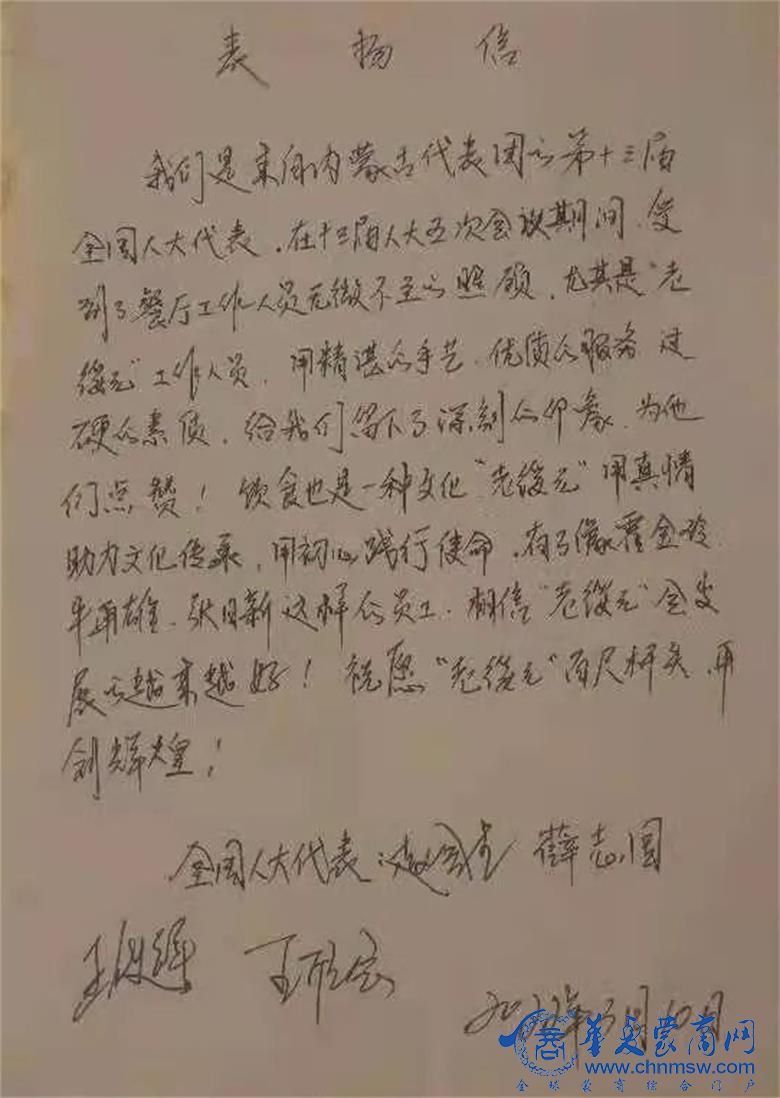 表扬信
我们是来自内蒙古代表团的第十三届
全国人大代表，在十三届人大五次会议期间，受
到了餐厅工作人员无微不至的照顾，尤其是“老
绥元”工作人员，用精湛的手艺、优质的服务、过
硬的素质，给我们留下了深刻的印象，为他
们点赞！饮食也是一种文化“老绥元”用真情
助力文化传承，用初心践行使命，有了像霍金玲、
牛雄、张日新这样的员工，相信“老绥元”会发
展的越来越好！祝愿“老绥元”百尺杆头，再
创辉煌！
全国人大代表：薛志国
2022年3月10日
华人蒙商网
www.chnmsw.com
全球蒙商综合门户